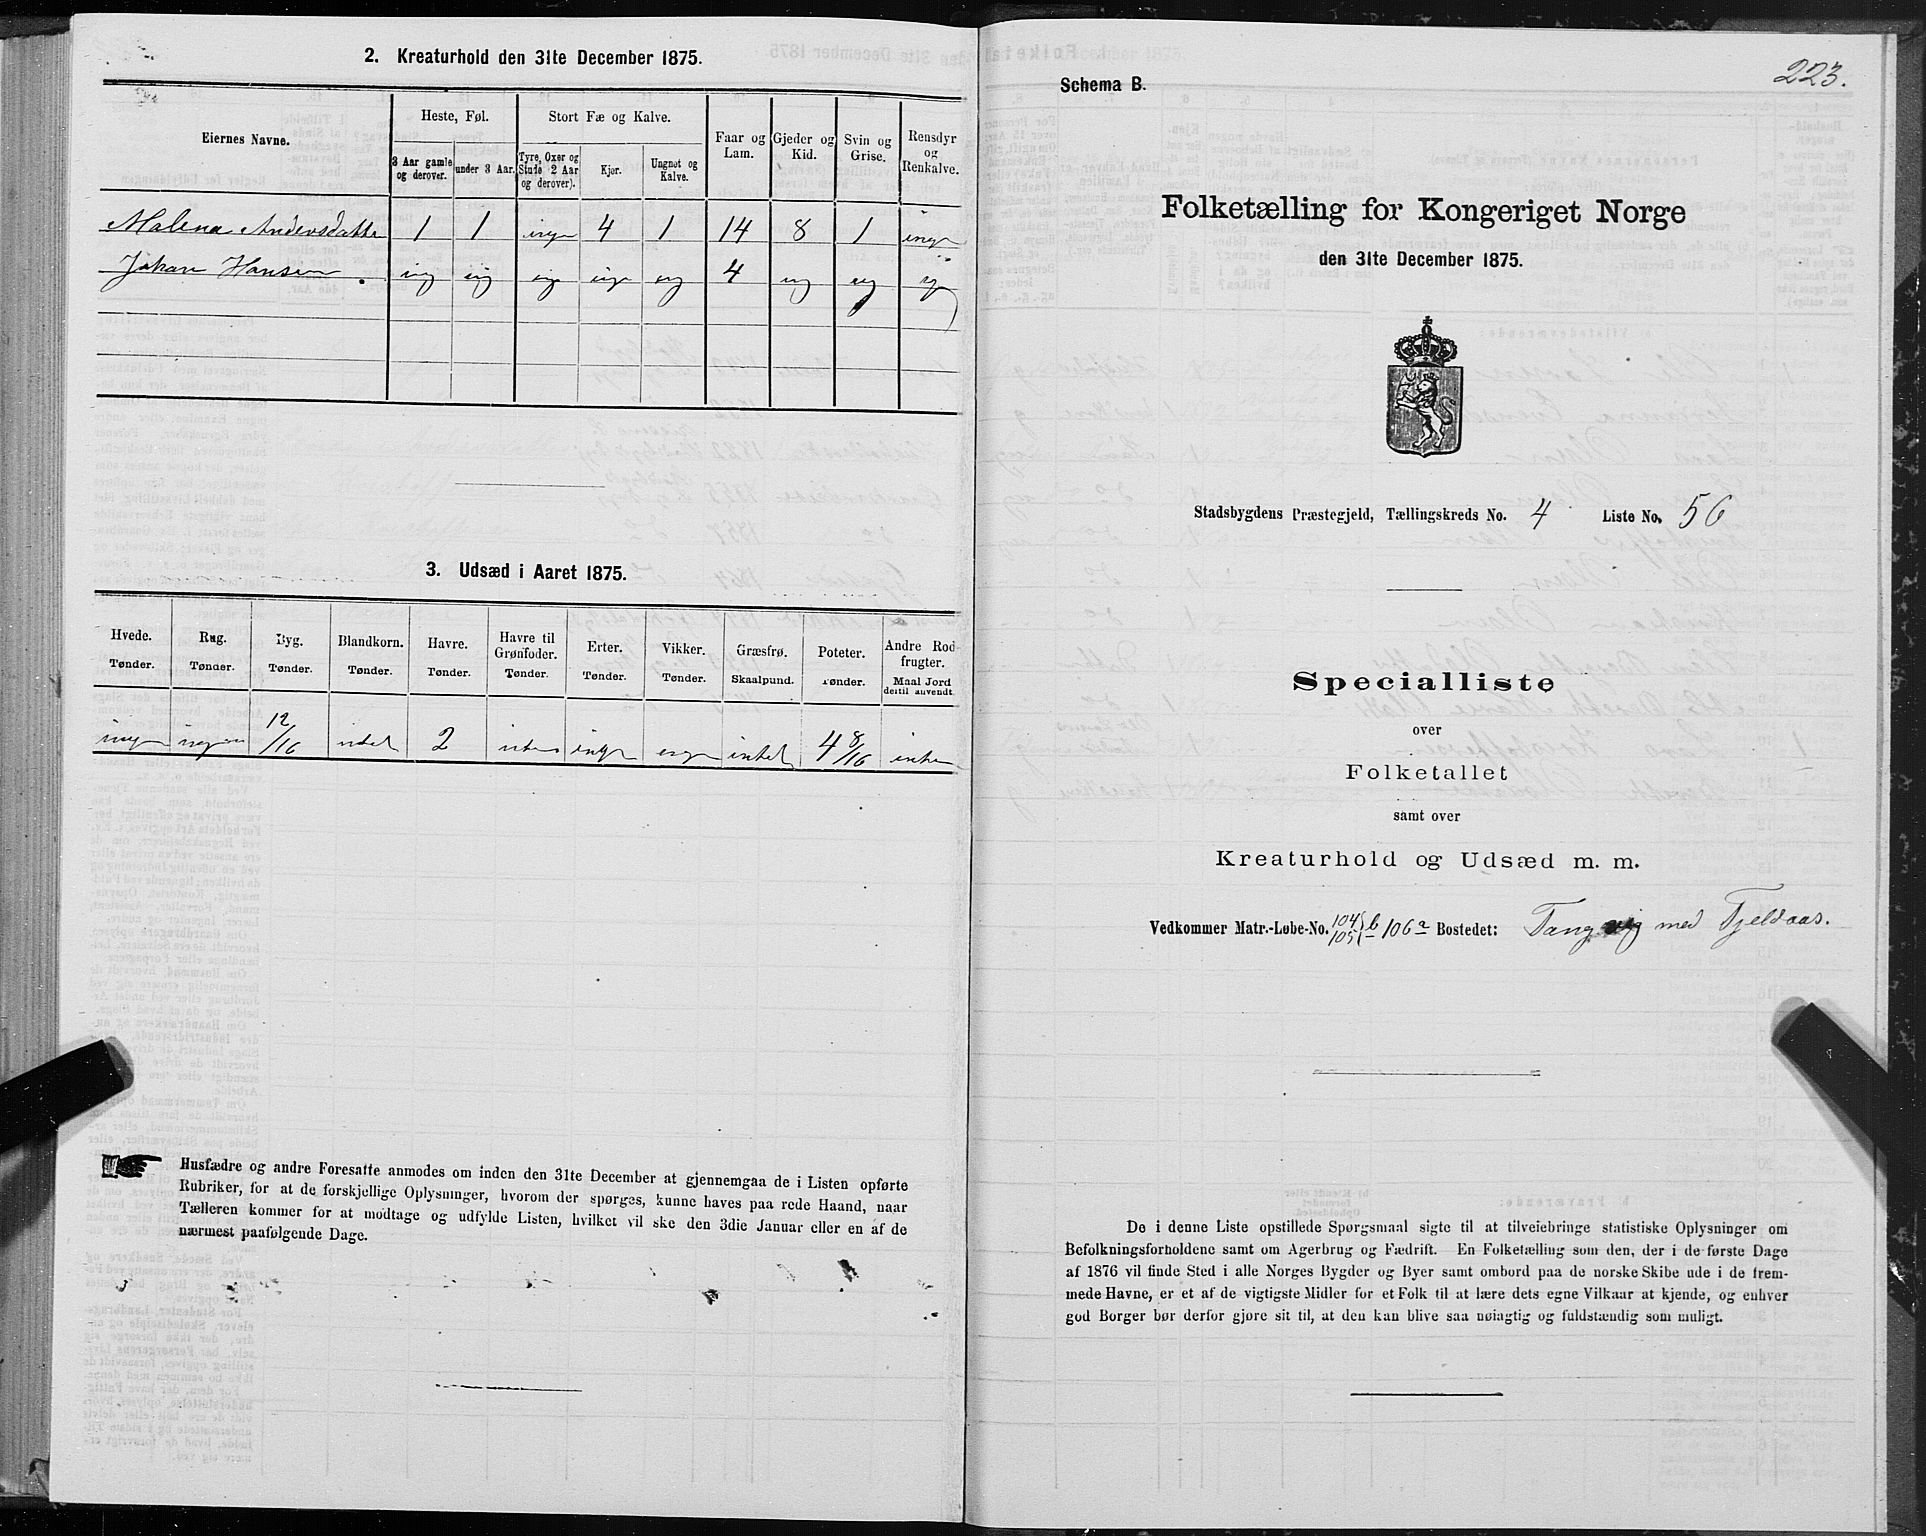 2. Kreaturhold den 31te December 1875.
Eiernes Navne.
Heste, Føl.
Stort Fæ og Kalve.
Faar og Lam.
Gjeder og Kid.
Svin og Grise.
Rensdyr og Renkalve.
3 Aar gamle og derover.
under 3 Aar.
Tyre, Oxer og Stude 2 Aar og derover).
Kjør.
Ungnøt og Kalve.
Malena Andersdatter 1 1 inge 4 1 14 8 1 inge
Johan Hansen ing ing ing inge ing 4 ing ing ing
3. Udsæd i Aaret 1875.
Hvede. Rug. Byg. Blandkorn. Havre. Havre til Grønfoder. Erter. Vikker. Græsfrø. Poteter. Andre Rodfrugter.
Tønder. Tønder. Tønder. Tønder. Tønder. Tønder. Tønder. Tønder. Skaalpund. Tønder. Maal Jord dertil anvendt.
ingen ingen 12/16 intet 2 intet inge inge intet 4 8/16 intet
Husfædre og andre Foresatte anmodes om inden den 31te December at gjennemgaa de i Listen opførte
Rubriker, for at de forskjellige Oplysninger, hvorom der spørges, kunne haves paa rede Haand, naar
Tælleren kommer for at modtage og udfylde Listen, hvilket vil ske den 3die Januar eller en af de
nærmest paafølgende Dage.
223.
Schema B.
Folketælling for Kongeriget Norge
den 31te December 1875.
Stadsbygdens Præstegjeld, Tællingskreds No. 4 Liste No. 56
Specialliste
over
Folketallet
samt over
Kreaturhold og Udsæd m. m.
Vedkommer Matr.-Løbe-No. 104 105 b 106a Bostedet: Tangvig med Fjeldaas.
De i denne Liste opstillede Spørgsmaal sigte til at tilveiebringe statistiske Oplysninger om
Befolkningsforholdene samt om Agerbrug og Fædrift. En Folketælling som den, der i de første Dage
af 1876 vil finde Sted i alle Norges Bygder og Byer samt ombord paa de norske Skibe ude i de frem-
mede Havne, er et af de vigtigste Midler for et Folk til at lære dets egne Vilkaar at kjende, og enhver
god Borger bør derfor gjøre sit til, at den kan blive saa nøiagtig og fuldstændig som muligt.